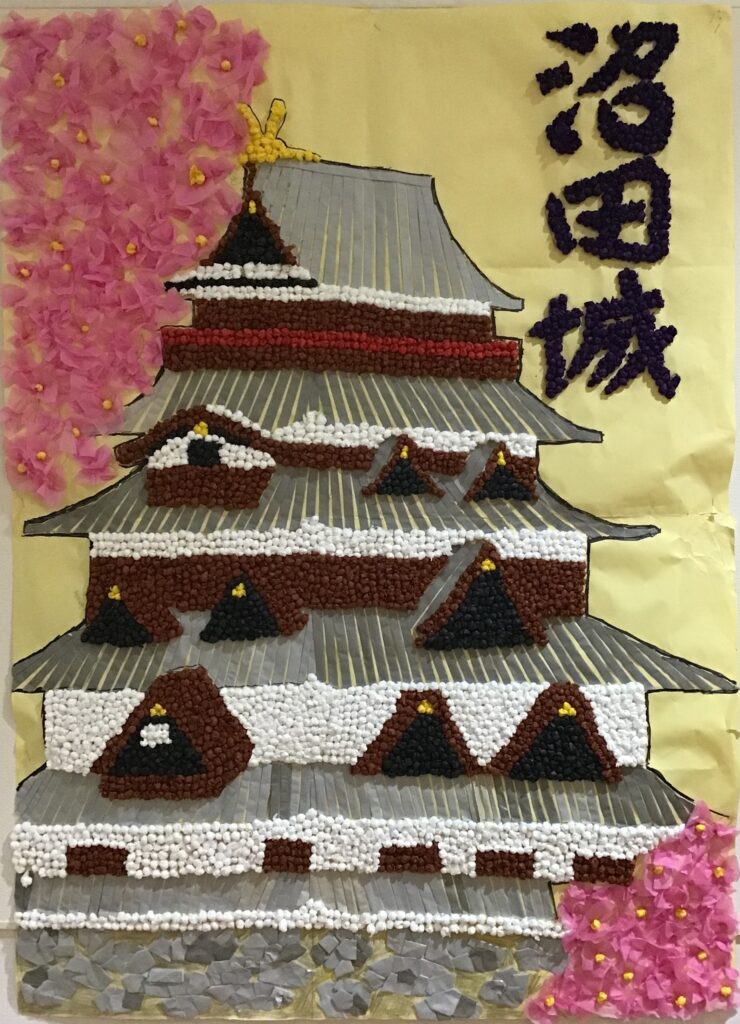 沼田城